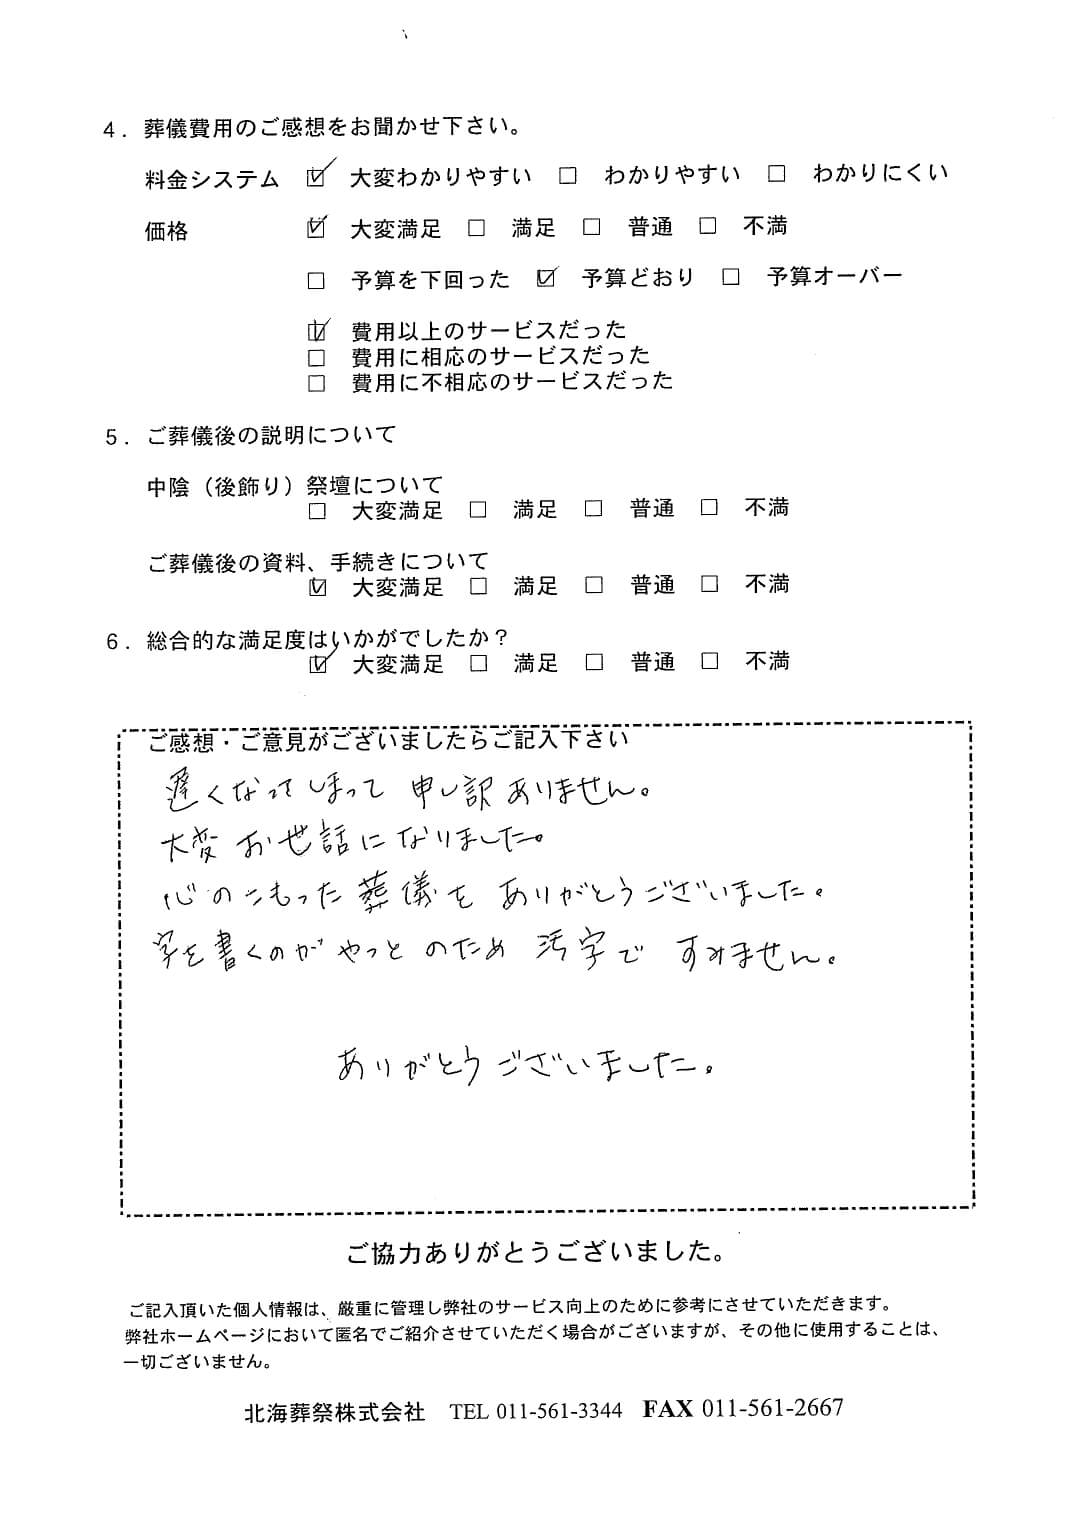 ４．葬儀費用のご感想をお聞かせ下さい。
料金システム ☑ 大変わかりやすい □ わかりやすい □ わかりにくい
価格 ☑ 大変満足 □ 満足 □ 普通 □ 不満
□ 予算を下回った ☑ 予算どおり □ 予算オーバー
☑ 費用以上のサービスだった
□ 費用に相応のサービスだった
□ 費用に不相応のサービスだった
５．ご葬儀後の説明について
中陰（後飾り）祭壇について
□ 大変満足 □ 満足 □ 普通 □ 不満
ご葬儀後の資料、手続きについて
☑ 大変満足 □ 満足 □ 普通 □ 不満
６．総合的な満足度はいかがでしたか？
☑ 大変満足 □ 満足 □ 普通 □ 不満
ご感想・ご意見がございましたらご記入下さい
遅くなってしまって 申し訳ありません。
大変お世話になりました。
心のこもった葬儀を ありがとうございました。
字を書くのがやっと のため 汚字で すみません。
ありがとうございました。
ご協力ありがとうございました。
ご記入頂いた個人情報は、厳重に管理し弊社のサービス向上のために参考にさせていただきます。
弊社ホームページにおいて匿名でご紹介させていただく場合がございますが、その他に使用することは、
一切ございません。
北海葬祭株式会社 TEL 011-561-3344 FAX 011-561-2667